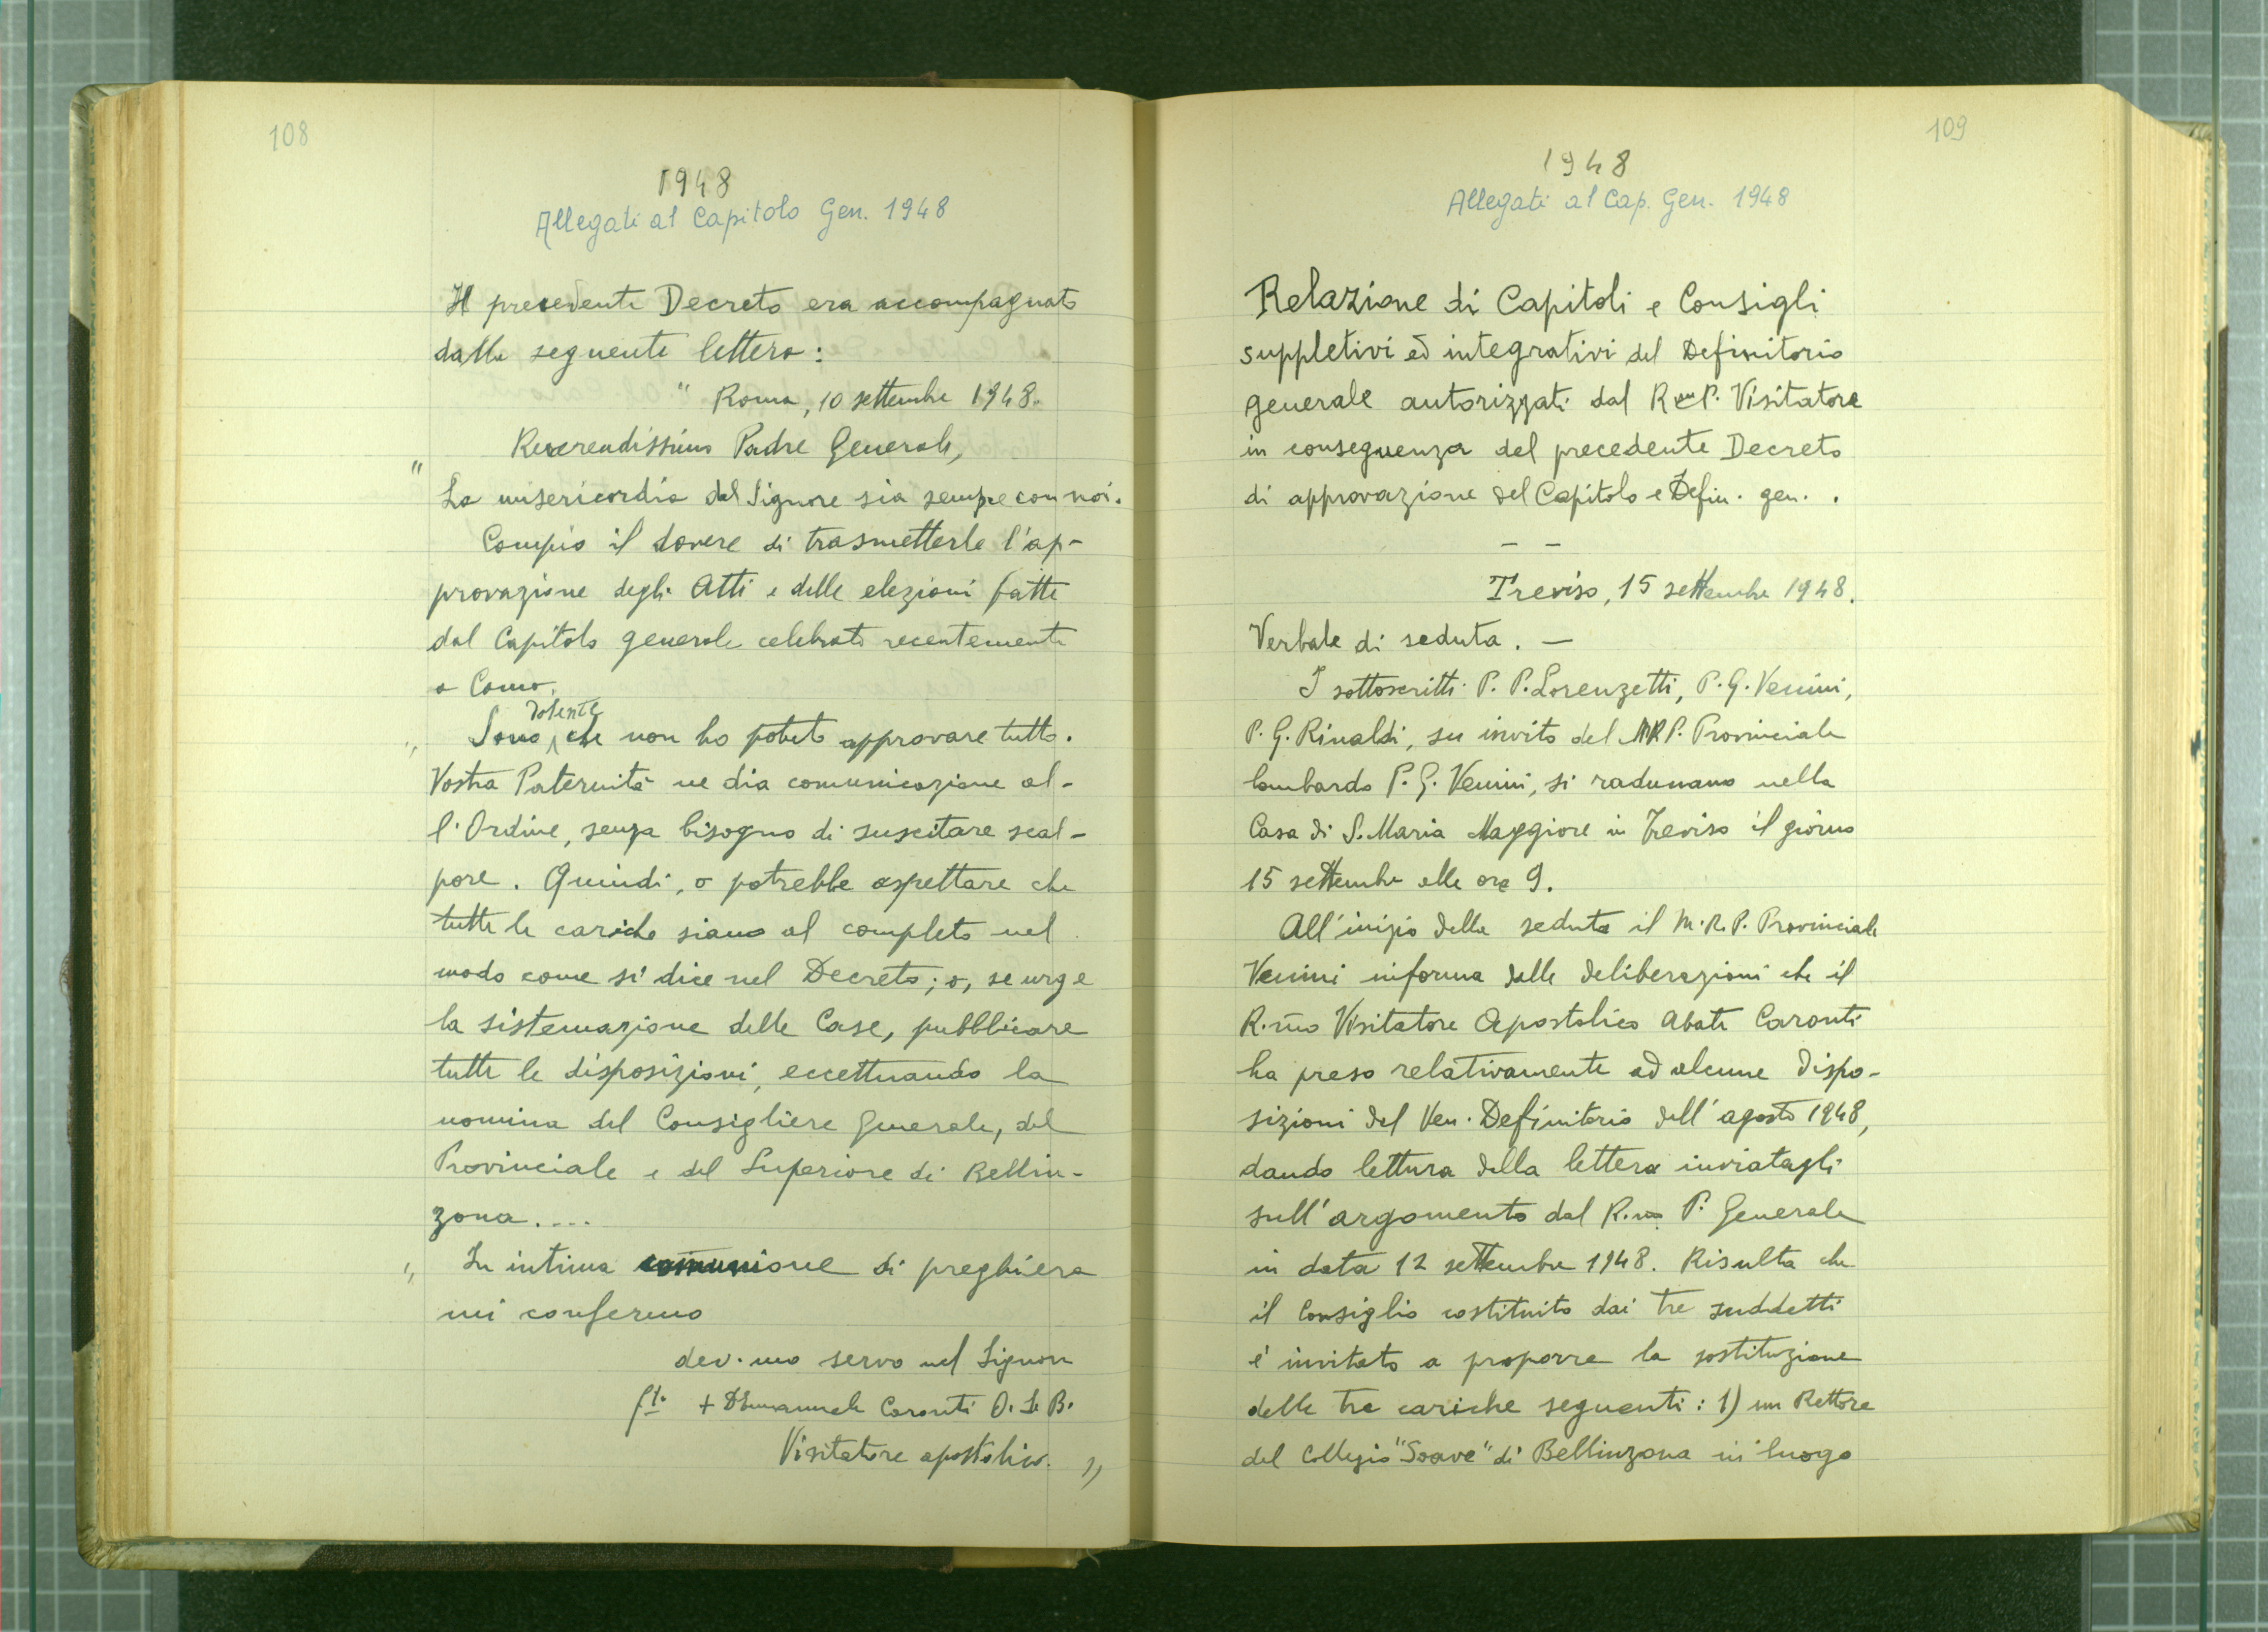 108
1948
Allegati al Capitolo Gen. 1948
Il precedente Decreto era accompagnato
dalla seguente lettera:
" Roma, 10 settembre 1948.
Reverendissimo Padre Generale,
" La misericordia del Signore sia sempre con noi.
Compio il dovere di trasmetterle l'ap-
provazione degli Atti e delle elezioni fatte
dal Capitolo generale celebrato recentemente
a Como.
dolente
" Sono che non ho potuto approvare tutto.
Vostra Paternità ne dia comunicazione al-
l'Ordine, senza bisogno di suscitare scal-
pore. Quindi, o potrebbe aspettare che
tutte le cariche siano al completo nel
modo come si dice nel Decreto; o, se urge
la sistemazione delle Case, pubblicare
tutte le disposizioni, eccettuando la
nomina del Consigliere Generale, del
Provinciale e del Superiore di Bellin-
zona....
" In intima comunione di preghiera
mi confermo
dev.mo servo nel Signore
f.to + D Emanuele Caronti O.S.B.
Visitatore apostolico. "
109
1948
Allegati al Cap. Gen. 1948
Relazione di Capitoli e Consigli
suppletivi ed integrativi del Definitorio
generale autorizzati dal Rmo P. Visitatore
in conseguenza del precedente Decreto
di approvazione del Capitolo e Defin. gen. .
– –
Treviso, 15 settembre 1948.
Verbale di seduta. –
I sottoscritti P. P. Lorenzetti, P. G. Venini,
P. G. Rinaldi, su invito del MRP. Provinciale
lombardo P. G. Venini, si radunano nella
Casa di S. Maria Maggiore in Treviso il giorno
15 settembre alle ore 9.
All'inizio della seduta il M.R.P. Provinciale
Venini informa delle deliberazioni che il
R.mo Visitatore Apostolico Abate Caronti
ha preso relativamente ad alcune dispo-
sizioni del Ven. Definitorio dell'agosto 1948,
dando lettura della lettera inviatagli
sull'argomento dal R.mo P. Generale
in data 12 settembre 1948. Risulta che
il Consiglio costituito dai tre suddetti
è invitato a proporre la sostituzione
delle tre cariche seguenti: 1) un Rettore
del Collegio "Soave" di Bellinzona in luogo